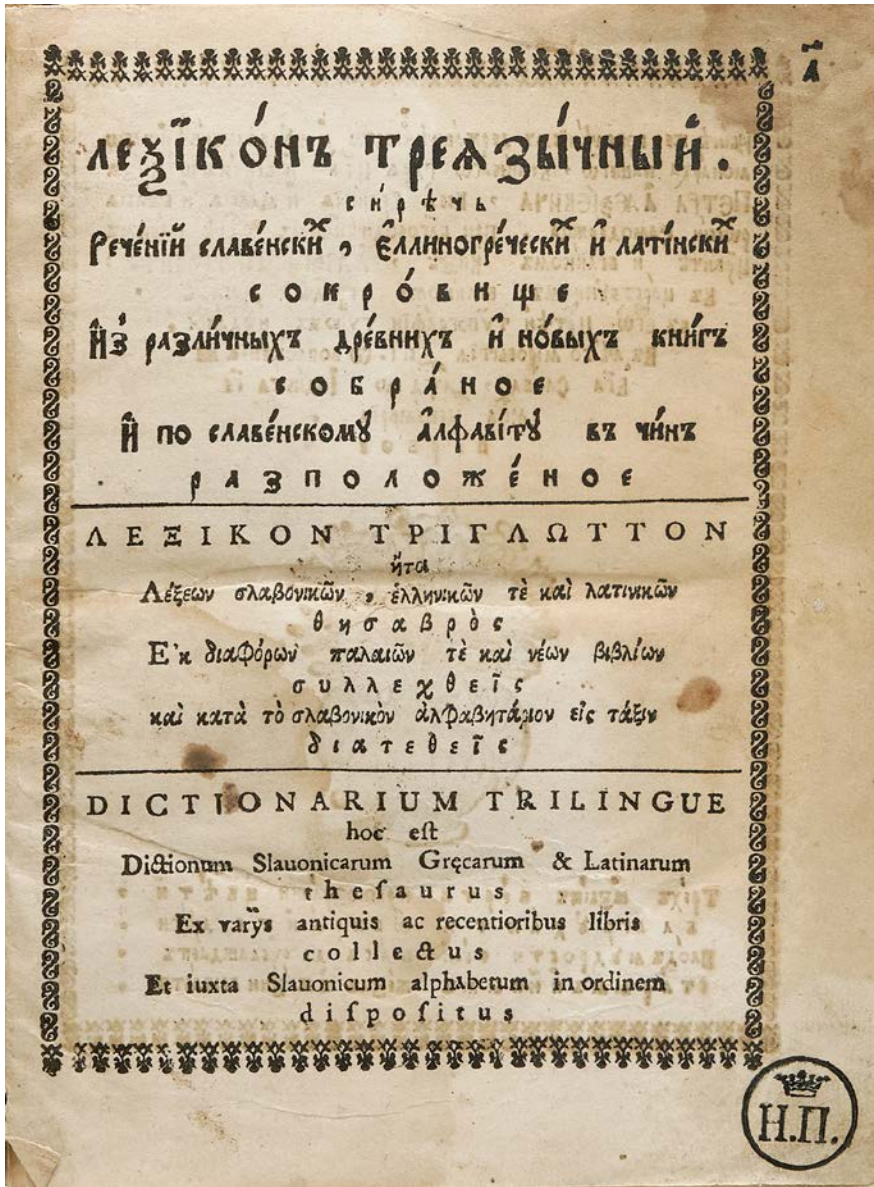 а҃
леѯїко́нъ треѧзы́чный.
си́рѣчь
Рече́нїй славе́нскиⷯ, є҆ллиногре́ческиⷯ и҆ лати́нскиⷯ
сокро́вище
И҆з̾ разли́чныхъ дре́внихъ и҆ но́выхъ кни́гъ
собра́ное
И҆ по славе́нскомꙋ а҆лфаві́тꙋ въ чи́нъ
разположе́ное
ΛΕΞΙΚΟΝ ΤΡΙΓΛΩΤΤΟΝ
ἤτοι
Λέξεων σλαβονικῶν, ἑλληνικῶν τὲ καὶ λατινικῶν
θησαβρὸς
Ἐκ διαφόρων παλαιῶν τὲ καὶ νέων βιβλίων
συλλεχθεῖς
καὶ κατὰ τὸ σλαβονικὸν ἀλφαβητάριον εἰς τάξιν
διατεθεῖς
DICTIONARIUM TRILINGUE
hoc eſt
Dictionum Slauonicarum Gręcarum & Latinarum
theſaurus
Ex varÿs antiquis ac recentioribus libris
collectus
Et iuxta Slauonicum alphabetum in ordinem
diſpoſitus
Н.П.